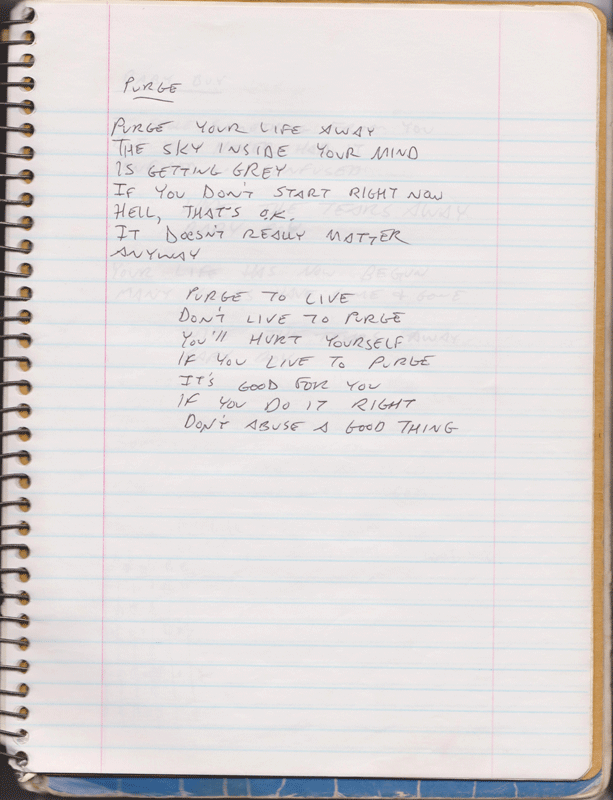 PURGE
PURGE YOUR LIFE AWAY
THE SKY INSIDE YOUR MIND
IS GETTING GREY
IF YOU DON'T START RIGHT NOW
HELL, THAT'S OK.
IT DOESN'T REALLY MATTER
ANYWAY
PURGE TO LIVE
DON'T LIVE TO PURGE
YOU'LL HURT YOURSELF
IF YOU LIVE TO PURGE
IT'S GOOD FOR YOU
IF YOU DO IT RIGHT
DON'T ABUSE A GOOD THING